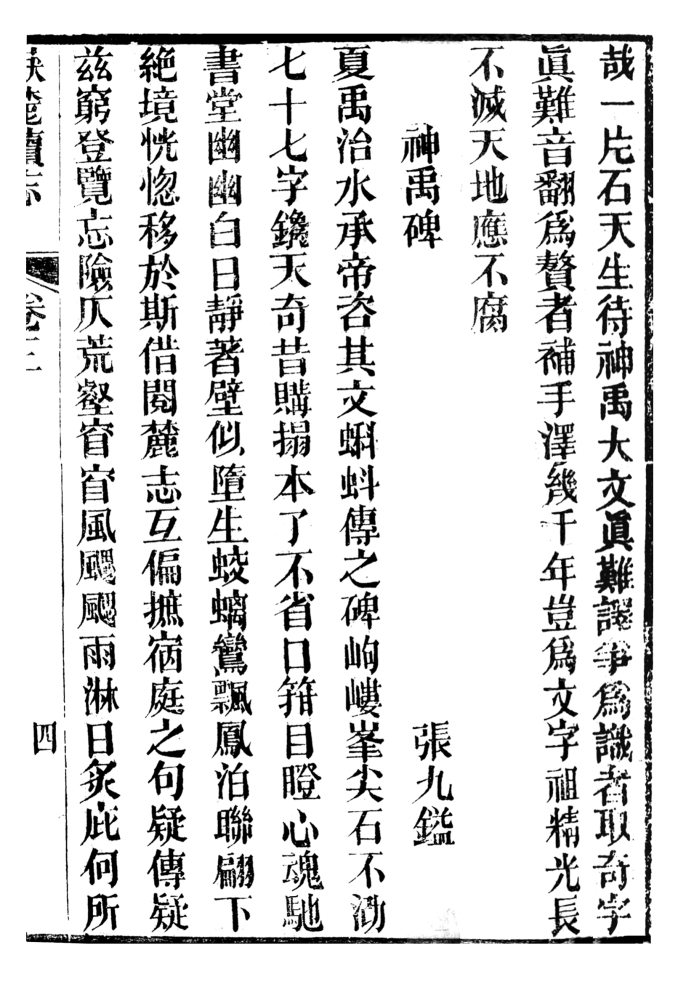 哉一片石天生待神禹大文眞難譯爭爲識者取奇字
眞難音翻爲贅者補手澤幾千年豈爲文字祖精光長
不滅天地應不腐
神禹碑
張九鎰
夏禹治水承帝咨其文蝌蚪傳之碑岣嶁峯尖石不泐
七十七字鑱天奇昔購搨本了不省口箝目瞪心魂馳
書堂幽幽白日靜著壁似墮生蛟螭鸞飄鳳泊聯翩下
絶境恍惚移於斯借閱麓志互偏摭宿庭之句疑傳疑
兹窮登覽忘險仄荒壑窅窅風颸颸雨淋日炙庇何所
嶽麓續志
卷三
四